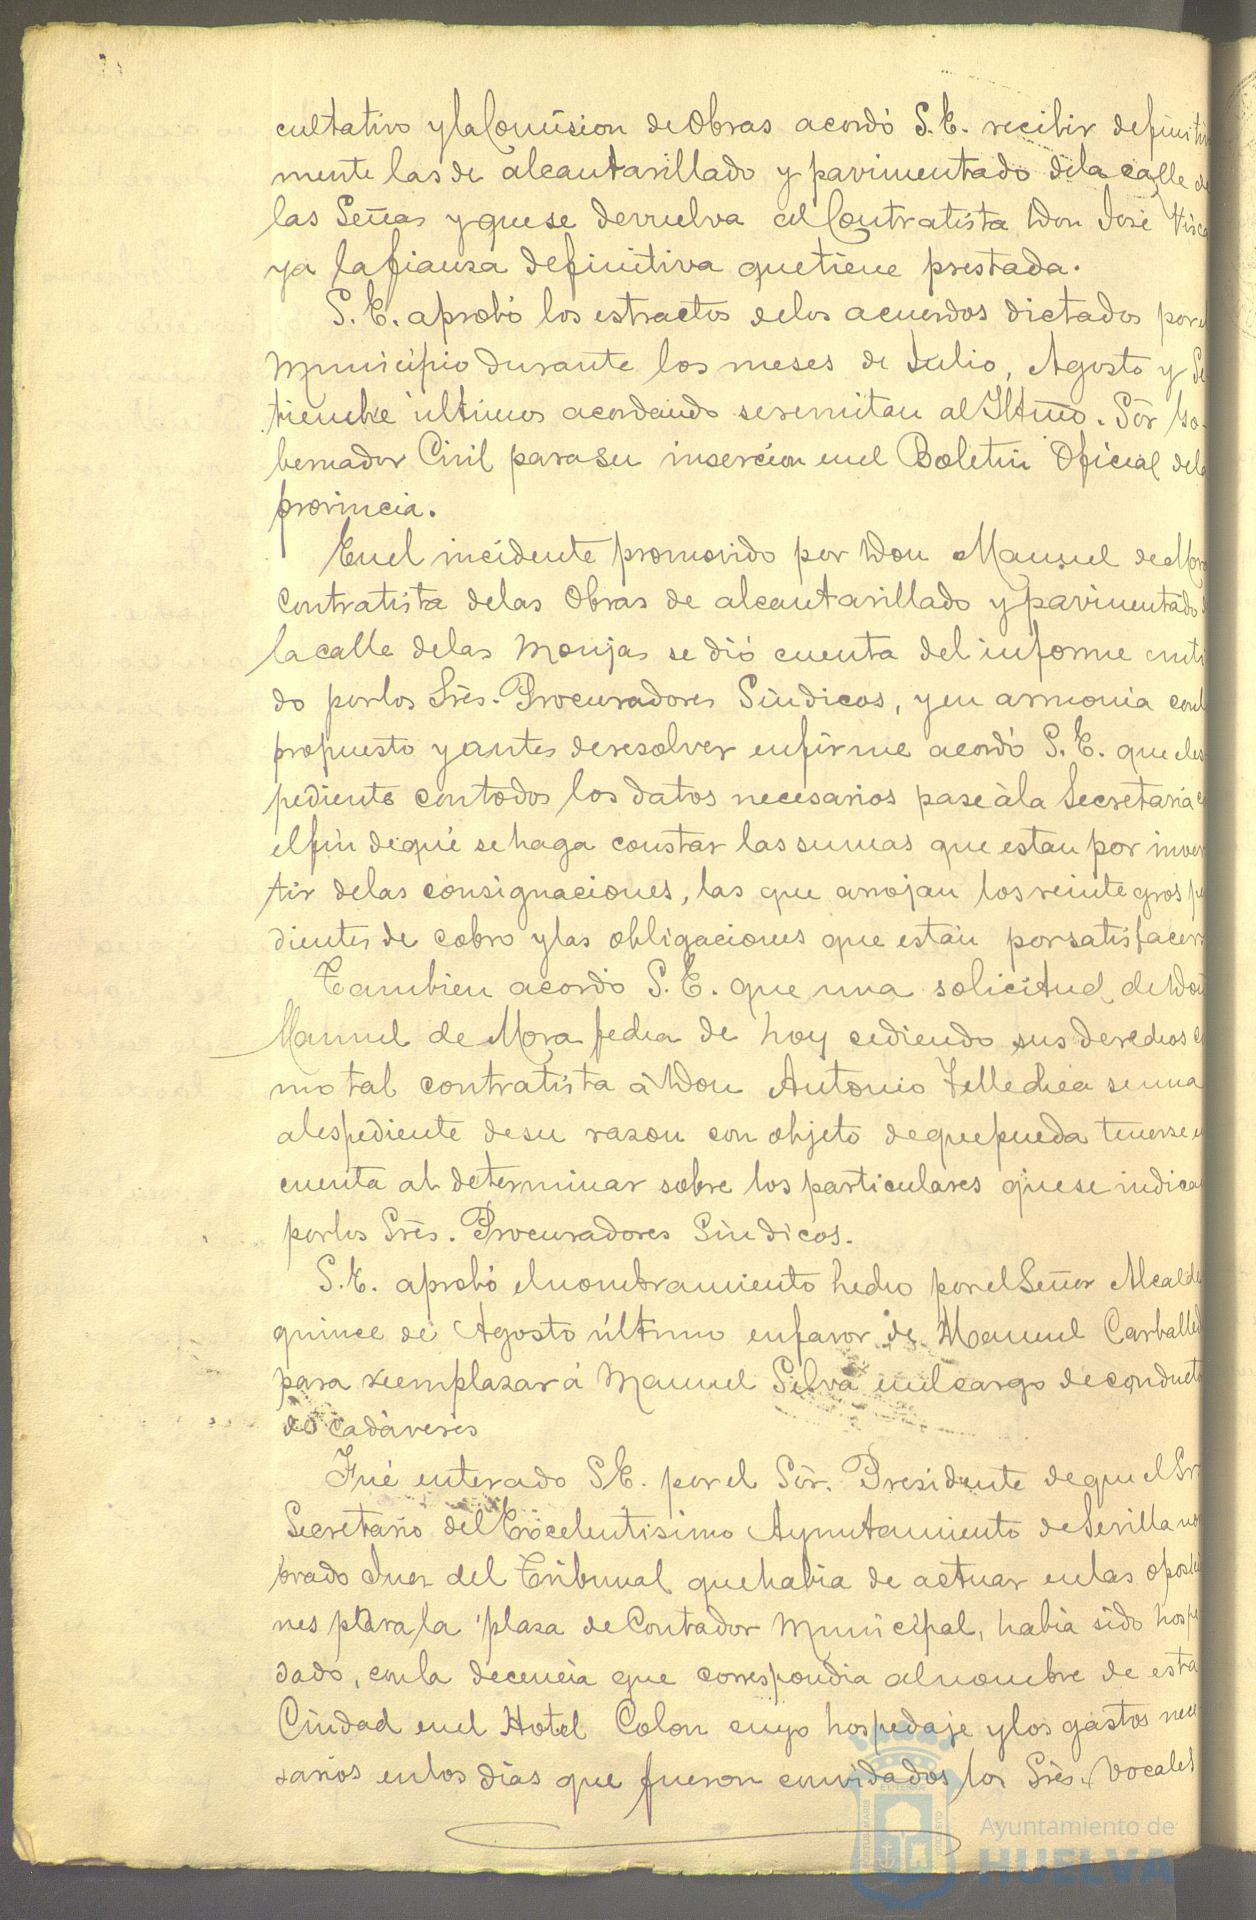 cultativo y la Comisión de Obras acordó S.E. recibir definiti
mente las de alcantarillado y pavimentado de la calle de
las Señas y que se devuelva al Contratista Don José Visca
ya la fianza definitiva que tiene prestada.
S.E. aprobó los estractos de los acuerdos dictados por el
Municipio durante los meses de Julio, Agosto y Se
tiembre últimos acordando se remitan al Iltmo. Sór Go-
bernador Civil para su inserción en el Boletin Oficial de la
provincia.
En el incidente promovido por Don Manuel de Mora
contratista de las Obras de alcantarillado y pavimentado
la calle de las Monjas se dió cuenta del informe emiti
do por los Srès. Procuradores Síndicos, y en armonia con l
propuesto y antes de resolver en firme acordó S.E. que el es
pediente con todos los datos necesarios pase à la Secretaría
el fin de qué se haga constar las sumas que estan por inver
tir de las consignaciones, las que arrojan los reintegros pe
dientes de cobro y las obligaciones que están por satisfacer
Tambien acordó S.E. que una solicitud de Don
Manuel de Mora fecha de hoy cediendo sus derechos co
mo tal contratista à Don Antonio Tellechea se una
al espediente de su razon con objeto de que pueda tenerse e
cuenta al determinar sobre los particulares que se indica
por los Srès. Procuradores Síndicos.
S.E. aprobó el nombramiento hecho por el Señor Alcalde
quince de Agosto último en favor de Manuel Carballed
para reemplazar á Manuel Silva en el cargo de conduct
de cadáveres
Fué enterado S.E. por el Sór. Presidente de que el Sr
Secretario del Excelentísimo Ayuntamiento de Sevilla no
brado Juez del Tribunal que habia de actuar en las oposici
nes para la plaza de Contador Municipal, habia sido hospe
dado, con la decencia que correspondia al nombre de esta
Ciudad en el Hotel Colon cuyo hospedaje y los gastos nece
sarios en los días que fueron convidados los Srès. Vocales
Ayuntamiento de
HUELVA